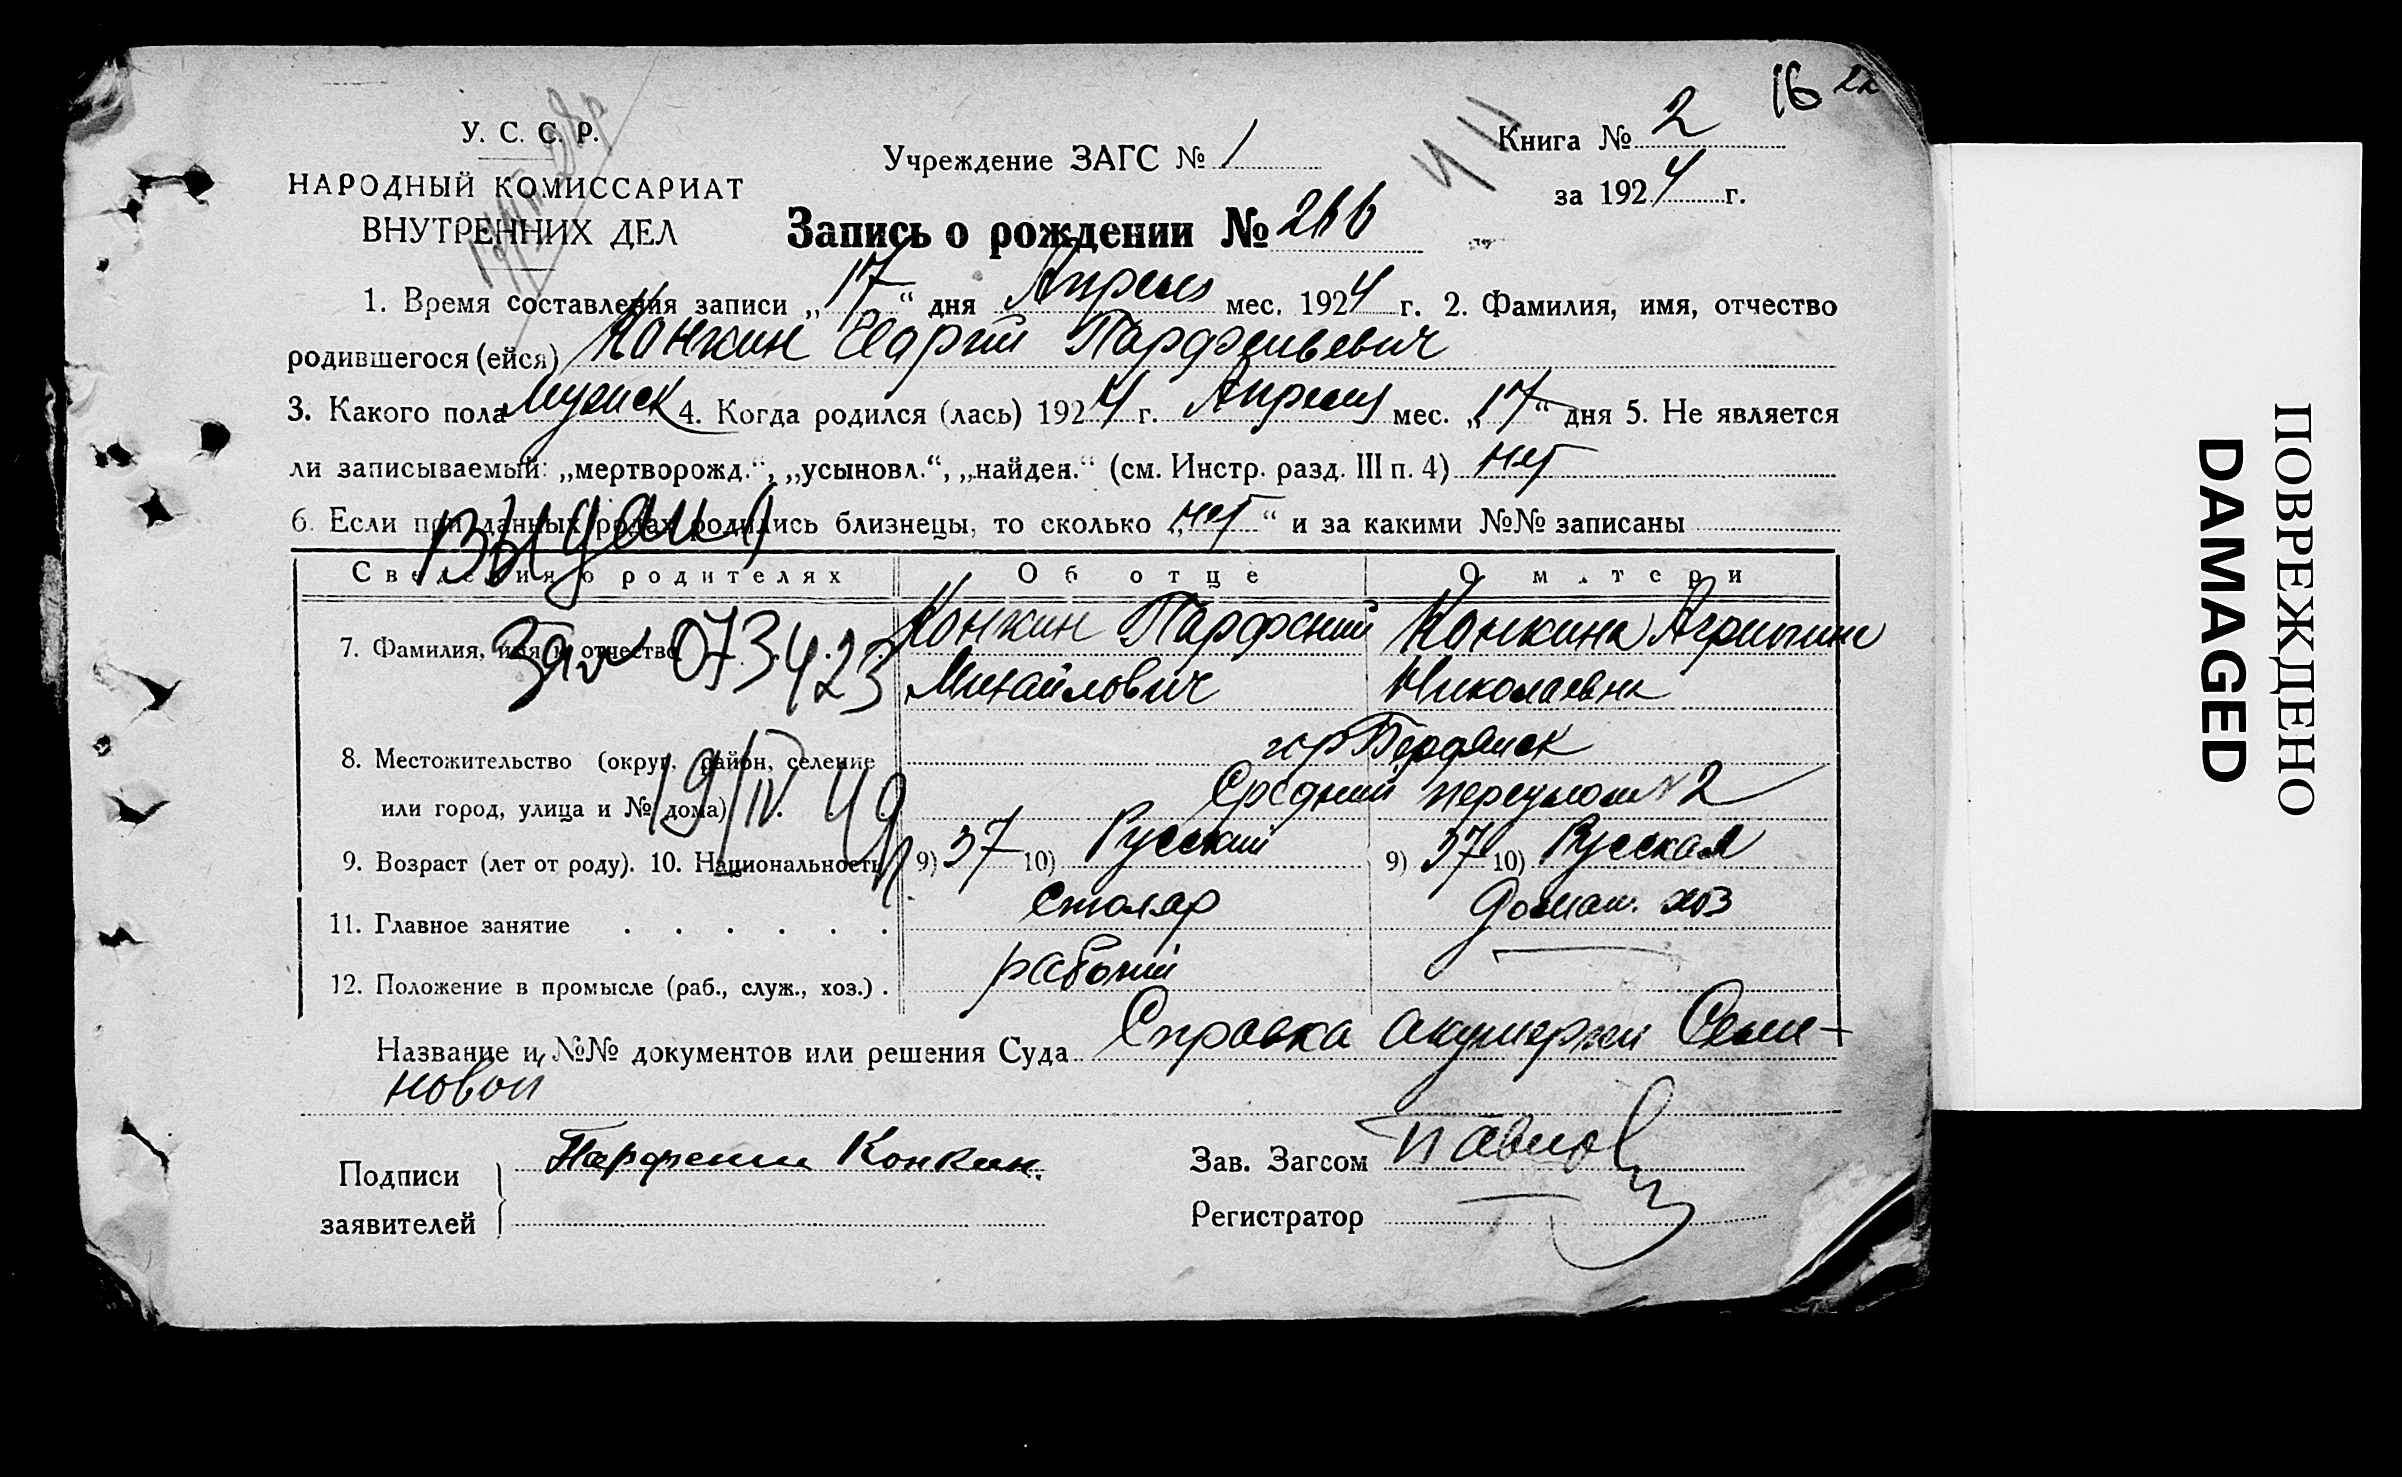 16 22
У. С. С. Р.
НАРОДНЫЙ КОМИССАРИАТ
ВНУТРЕННИХ ДЕЛ
Учреждение ЗАГС № 1
Книга № 2
за 1924 г.
Запись о рождении № 266
1. Время составления записи „17“ дня Апреля мес. 1924 г. 2. Фамилия, имя, отчество
родившегося (ейся) Конкин Парфеньевич
3. Какого пола Мужск 4. Когда родился (лась) 1924 г. Апреля мес. „17“ дня 5. Не является
ли записываемый: „мертворожд.“, „усыновл.“, „найден.“ (см. Инстр. разд. III п. 4) нет
6. Если при данных родах родились близнецы, то сколько „нет“ и за какими №№ записаны
Выдан
Сведения о родителях Об отце О матери
7. Фамилия, имя и отчество Конкин Парфений Конкина Агрипина
073423
Михайлович Николаевна
8. Местожительство (округ, район, селение гор Бердянск
или город, улица и № дома) Средний переулок № 2
19/IV 49
9. Возраст (лет от роду). 10. Национальность 9) 37 10) Русский 9) 37 10) Русская
11. Главное занятие . . . . . . Столяр домаш. хоз
12. Положение в промысле (раб., служ., хоз.) . рабочий
Название и №№ документов или решения Суда Справка акушерки Семе-
новой
Подписи
заявителей
Парфений Конкин.
Зав. Загсом Павлов
Регистратор
ПОВРЕЖДЕНО
DAMAGED